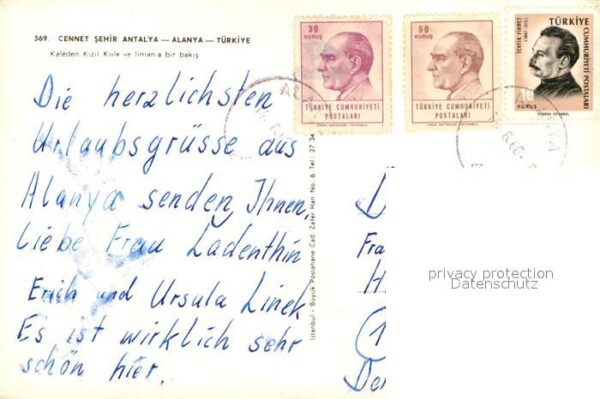 569. CENNET ŞEHİR ANTALYA — ALANYA — TÜRKİYE
Kaleden Kızıl Kule ve liman'a bir bakış
Die herzlichsten
Urlaubsgrüsse aus
Alanya senden Ihnen,
liebe Frau Ladenthin
Erich und Ursula Linek
Es ist wirklich sehr
schön hier.
İstanbul - Büyük Postahane Cad. Zafer Han No. 6 Tel: 27 34
30
KURUŞ
TÜRKİYE CUMHURİYETİ
POSTALARI
50
KURUŞ
TÜRKİYE CUMHURİYETİ
POSTALARI
TÜRKİYE
CUMHURİYETİ POSTALARI
TEVFİK FİKRET
KURUŞ
Fra
H
(1
privacy protection
Datenschutz